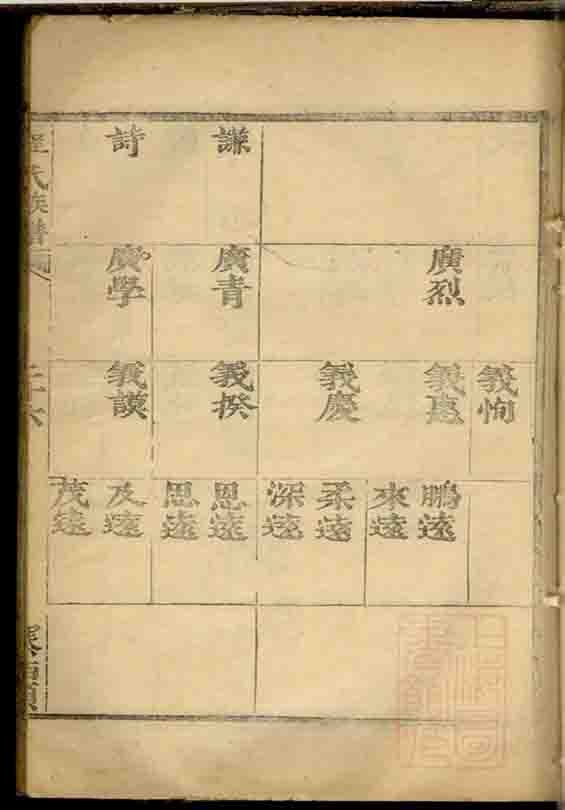 謙
詩
廣烈
廣青
廣學
義恂
義惠
義慶
義揆
義謨
鵬遠
來遠
柔遠
深遠
恩遠
思遠
及遠
茂遠
氏族譜
二十六